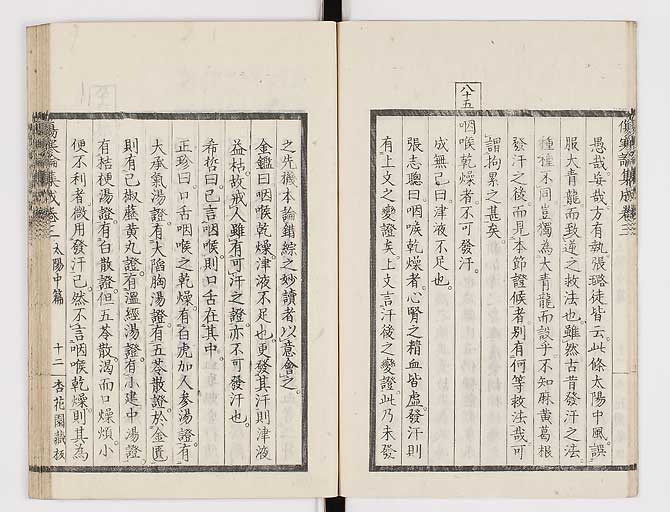 愚哉妄哉方有執張璐徒皆云此條太陽中風誤
服大青龍而致逆之救法也雖然古昔發汗之法
種種不同豈獨為大青龍而設乎不知麻黃葛根
發汗之後而見本節證候者別有何等救法哉可
謂拘累之甚矣
八十五
咽喉乾燥者不可發汗
成無己曰津液不足也
張志聰曰咽喉乾燥者心腎之精血皆虛發汗則
有上文之變證矣上文言汗後之變證此乃未發
之先機本論錯綜之妙讀者以意會之
金鑑曰咽喉乾燥津液不足也更發其汗則津液
益枯故戒人雖有可汗之證亦不可發汗也
希哲曰已言咽喉則口舌在其中
正珍曰口舌咽喉之乾燥有白虎加人參湯證有
大承氣湯證有大陷胸湯證有五苓散證於金匱
則有己椒藶黃丸證有溫經湯證有小建中湯證
有桔梗湯證有白散證但五苓散渴而口燥煩小
便不利者微用發汗已然不言咽喉乾燥則其為
傷寒論集成卷三 太陽中篇 十二 杏花園藏板